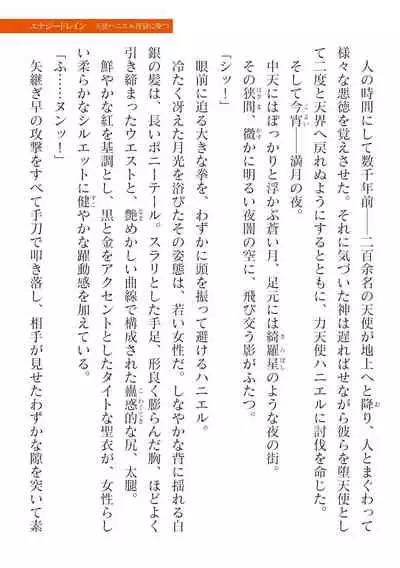 エナジードレイン 天使ハニエル淫獄に堕つ
人の時間にして数千年前――二百余名の天使が地上へと降り、人とまぐわって
様々な悪徳を覚えさせた。それに気づいた神は遅ればせながら彼らを堕天使とし
て二度と天界へ戻れぬようにするとともに、力天使ハニエルに討伐を命じた。
そして今宵――満月の夜。
中天にはぽっかりと浮かぶ蒼い月、足元には綺羅星のような夜の街。
その狭間、微かに明るい夜闇の空に、飛び交う影がふたつ。
「シッ！」
眼前に迫る大きな拳を、わずかに頭を振って避けるハニエル。
冷たく冴えた月光を浴びたその姿態は、若い女性だ。しなやかな背に揺れる白
銀の髪は、長いポニーテール。スラリとした手足、形良く膨らんだ胸、ほどよく
引き締まったウエストと、艶めかしい曲線で構成された蠱惑的な尻、太腿。
鮮やかな紅を基調とし、黒と金をアクセントとしたタイトな聖衣が、女性らし
い柔らかなシルエットに健やかな躍動感を加えている。
「ふ……ヌンッ！」
矢継ぎ早の攻撃をすべて手刀で叩き落し、相手が見せたわずかな隙を突いて素